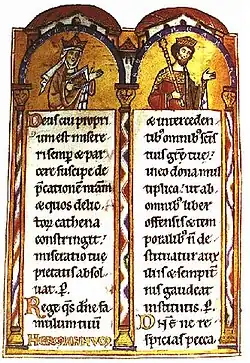 Deus cui propri
um est misere
ri semp & par
cere suscipe de
p̄catione nr̄am
& quos delic
toꝝ cathena
constringit.
miseratio tue
pietatis absol
uat. P.
Rege qs dn̄e fa
mulum tuū
HERIMANNVM
& interceden
tib; omnib; scīs
tuis grē tue
in eo dona mul
tiplica. ut ab
omnibus liber
offensis & tem
poralib; n̄ de
stituatur auxi
liis & sempiter
nis gaudeat
institutis. P.
Dn̄e ne re
spicias pecca